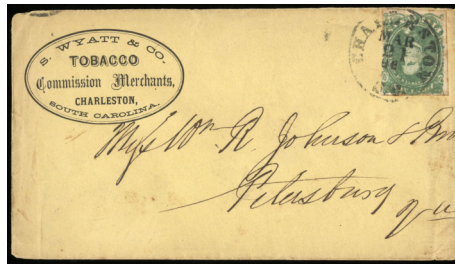 S. WYATT & CO.
TOBACCO
Commission Merchants,
CHARLESTON,
SOUTH CAROLINA.
CHARLESTON
MAR
Wm R. Johnson & Bro
Petersburg